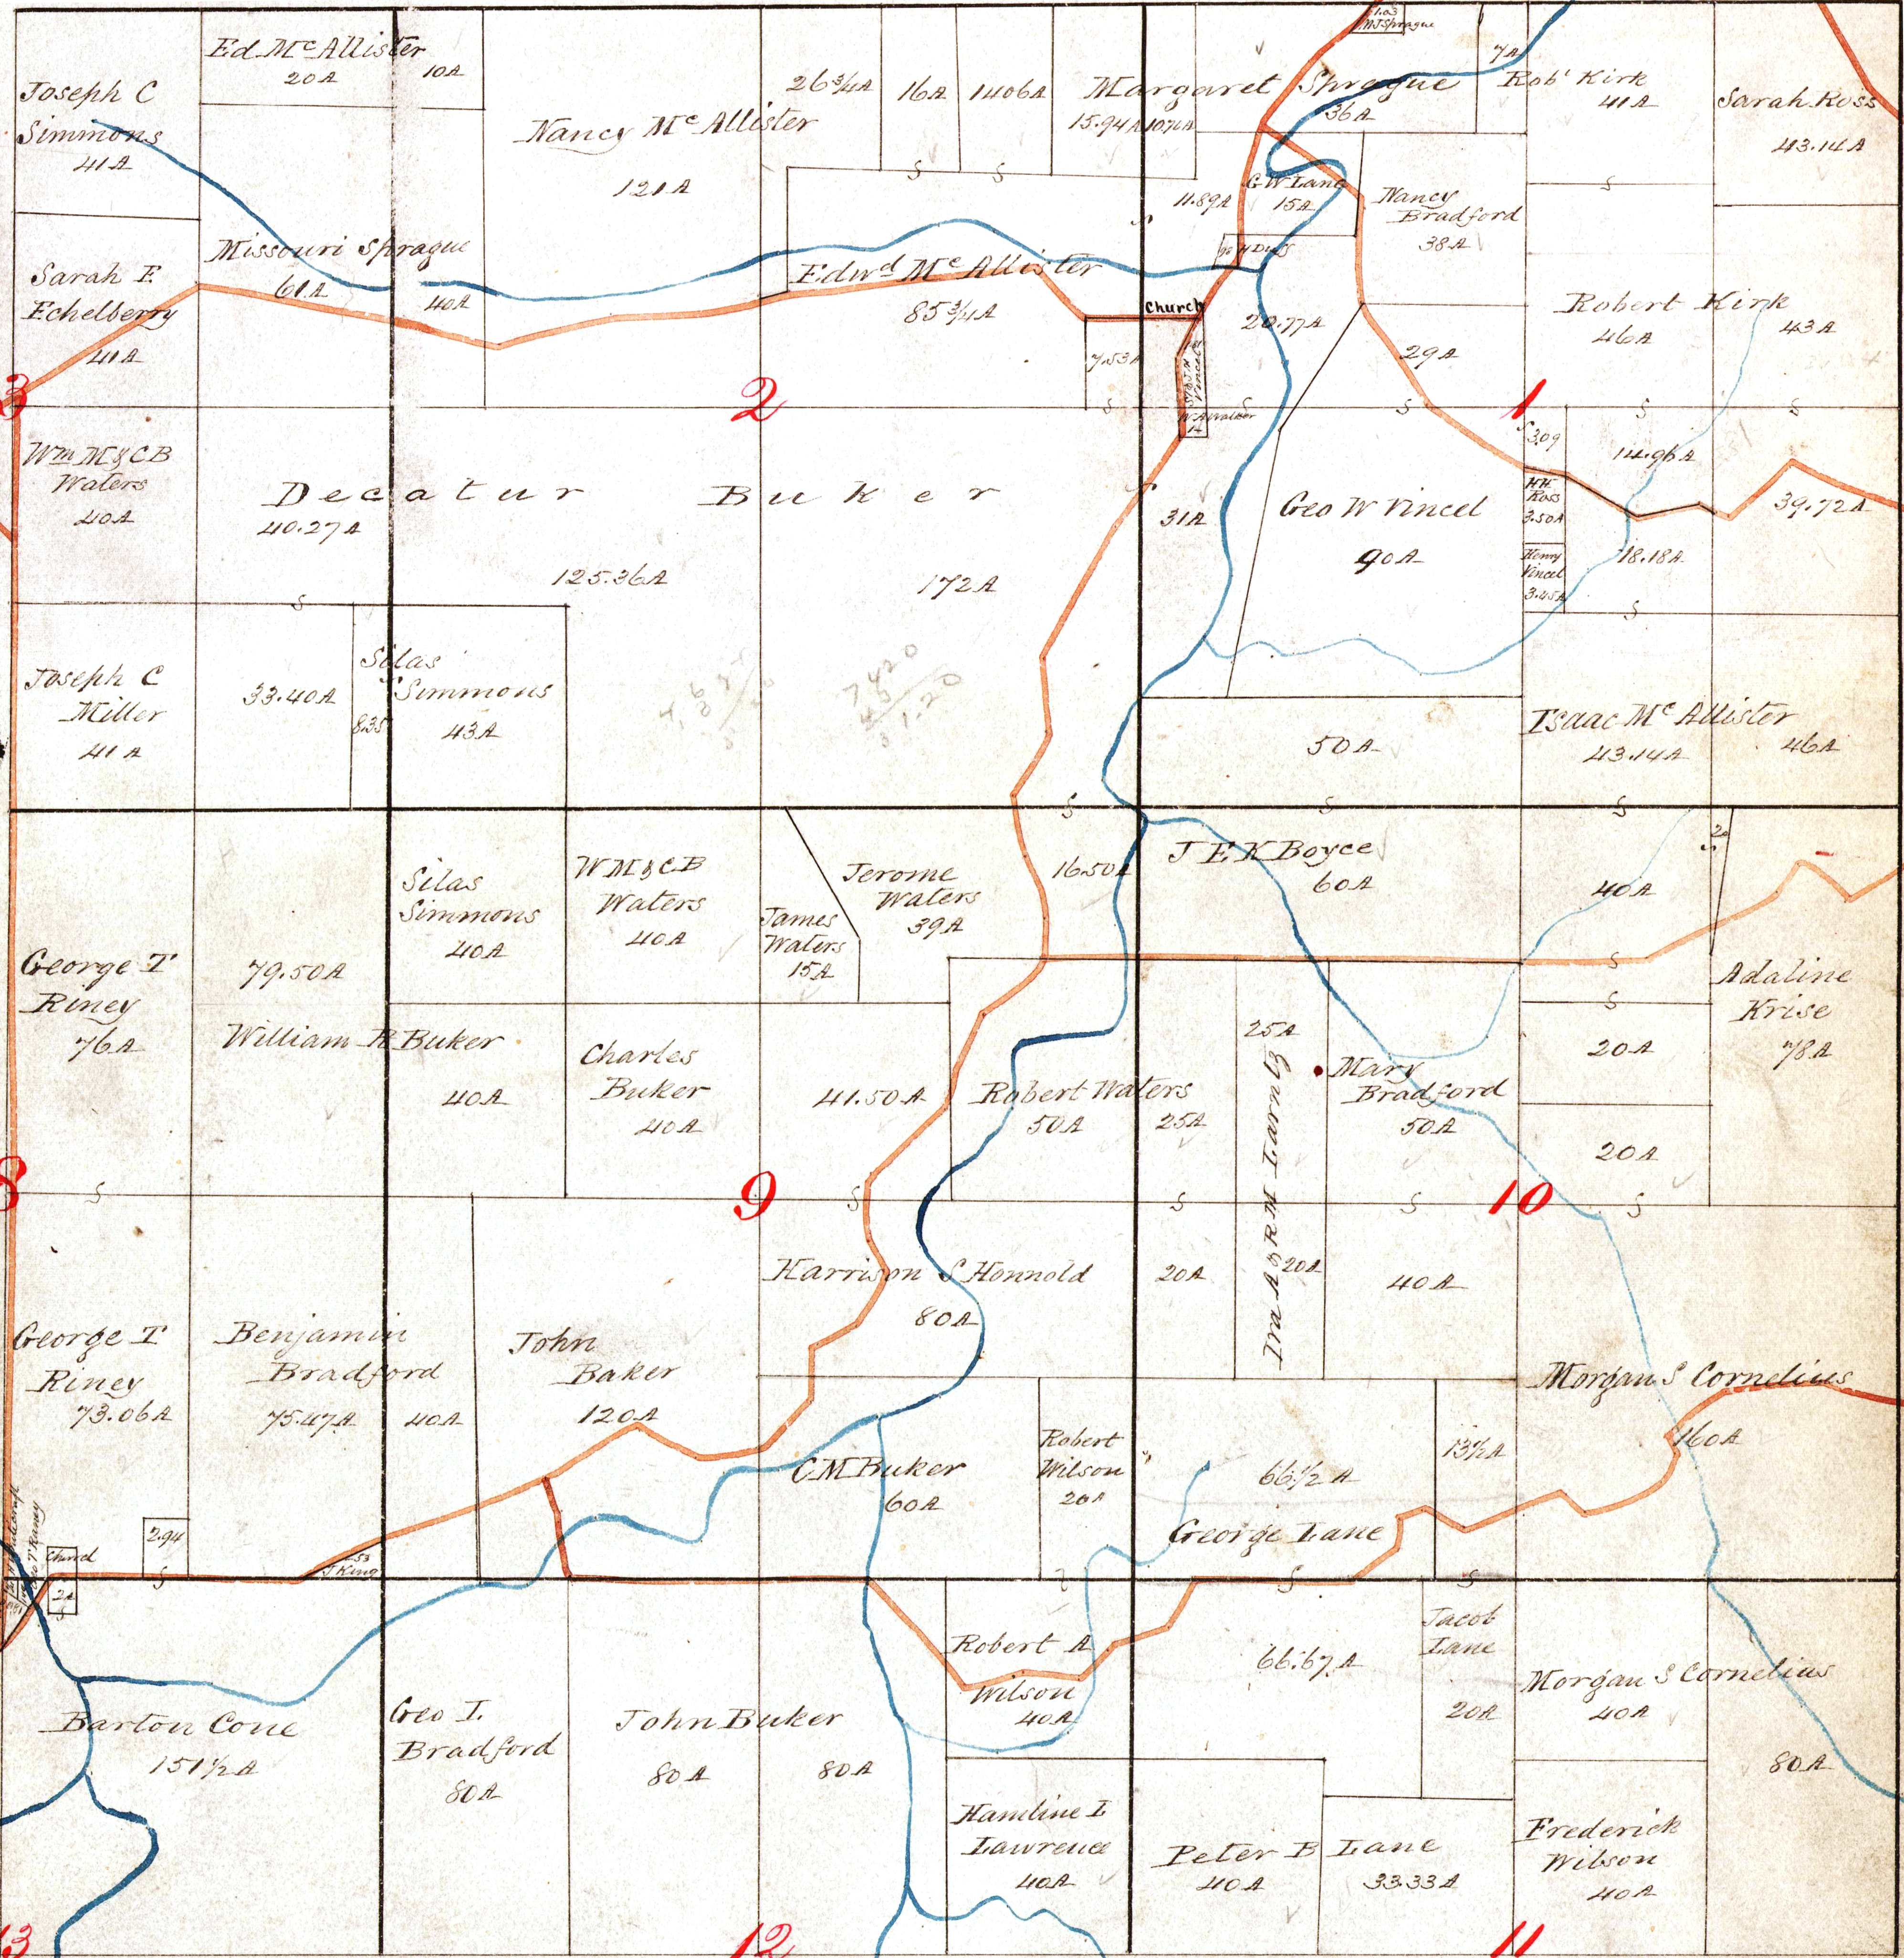 Joseph C
Simmons
41A
Ed McAllister
20A
10A
Nancy McAllister
121A
26¾A
16A
1406A
Margaret Sprague
15.94A
1076A
36A
7A
Robt Kirk
41A
Sarah Ross
43.14A
11.89A
G W Lane
15A
Nancy
Bradford
38A
Sarah E
Echelberry
41A
Missouri Sprague
61A
40A
Edwd McAllister
85¾A
7.53A
Church
20.77A
29A
Robert Kirk
46A
43A
3
2
1
W A Walker
Wm M & C B
Waters
40A
Decatur Buker
40.27A
125.36A
172A
31A
Geo W Vincel
90A
3.09
H H
Ross
3.50A
Henry
Vincel
3.45A
14.96A
18.18A
39.72A
Joseph C
Miller
41A
33.40A
8.35
Silas
Simmons
43A
50A
Isaac McAllister
43.14A
46A
George T
Riney
76A
79.50A
William R Buker
40A
Silas
Simmons
40A
W M & C B
Waters
40A
James
Waters
15A
Jerome
Waters
39A
16.50A
J E K Boyce
60A
40A
2A
Adaline
Krise
78A
Charles
Buker
40A
41.50A
Robert Waters
50A
25A
25A
Mary
Bradford
50A
20A
20A
9
10
George T
Riney
73.06A
Benjamin
Bradford
75.47A
40A
John
Baker
120A
Harrison S Honnold
80A
20A
20A
40A
Morgan S Cornelius
160A
C M Buker
60A
Robert
Wilson
20A
66½A
George Lane
13½A
Church
2A
2.94
.53
J King
Barton Cone
151½A
Geo I.
Bradford
80A
John Buker
80A
80A
Robert A
Wilson
40A
66.67A
Jacob
Lane
20A
Morgan S Cornelius
40A
80A
Hamline L
Lawrence
40A
Peter B Lane
40A
33.33A
Frederick
Wilson
40A
13
12
11